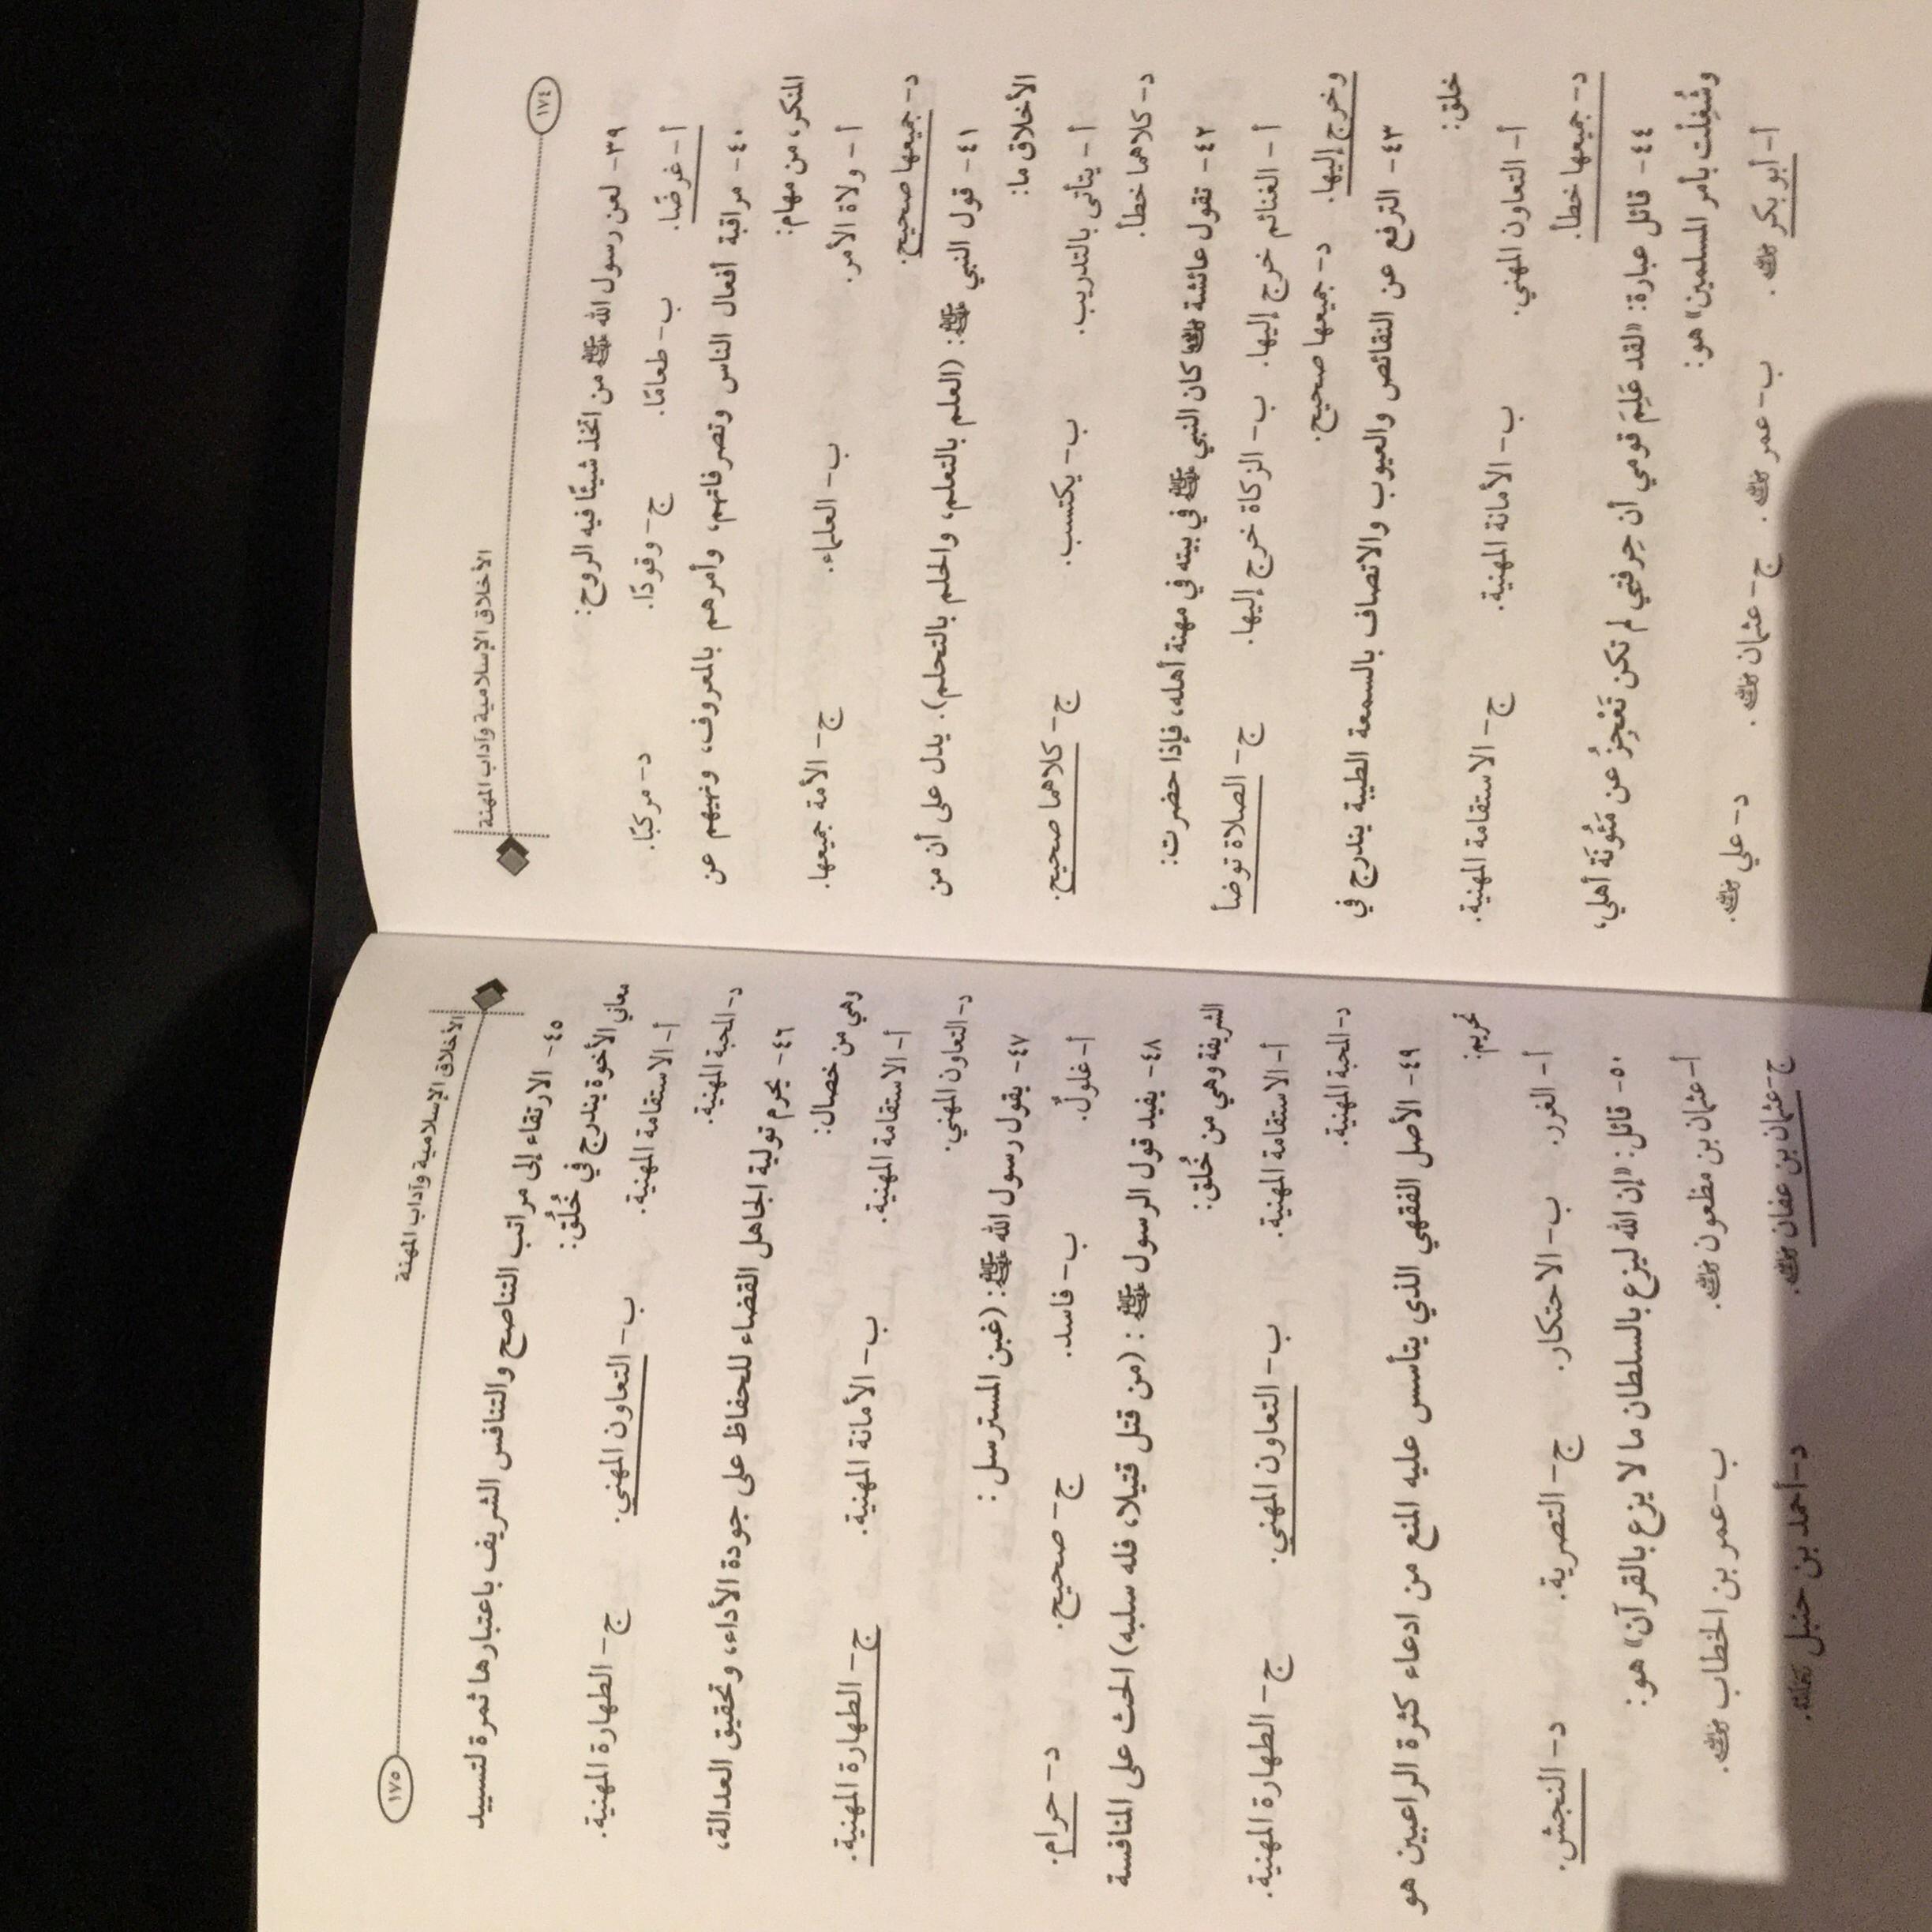 ١٧٤
الأخلاق الإسلامية وآداب المهنة
٣٩- لعن رسول الله ﷺ من اتخذ شيئًا فيه الروح:
أ- غرضًا. ب- طعامًا. ج- وقودًا. د- مركبًا.
٤٠- مراقبة أفعال الناس وتصرفاتهم، وأمرهم بالمعروف، ونهيهم عن
المنكر، من مهام:
أ- ولاة الأمر. ب- العلماء. ج- الأمة جميعها.
د- جميعها صحيح.
٤١- قول النبي ﷺ: (العلم بالتعلم، والحلم بالتحلم). يدل على أن من
الأخلاق ما:
أ- يتأتى بالتدريب. ب- يكتسب. ج- كلاهما صحيح.
د- كلاهما خطأ.
٤٢- تقول عائشة رضي الله عنها كان النبي ﷺ في بيته في مهنة أهله، فإذا حضرت:
أ- الغنائم خرج إليها. ب- الزكاة خرج إليها. ج- الصلاة توضأ
وخرج إليها. د- جميعها صحيح.
٤٣- الترفع عن النقائص والعيوب والاتصاف بالسمعة الطيبة يندرج في
خلق:
أ- التعاون المهني. ب- الأمانة المهنية. ج- الاستقامة المهنية.
د- جميعها خطأ.
٤٤- قائل عبارة: «لقد عَلِمَ قومي أن حِرفتي لم تكن تَعْجِزُ عن مَئُونَة أهلي،
وشُغِلْت بأمر المسلمين» هو:
أ- أبو بكر رضي الله عنه. ب- عمر رضي الله عنه. ج- عثمان رضي الله عنه. د- علي رضي الله عنه.
الأخلاق الإسلامية وآداب المهنة
١٧٥
٤٥- الارتقاء إلى مراتب التناصح والتنافس الشريف باعتبارها ثمرة لتسييد
معاني الأخوة يندرج في خُلُق:
أ- الاستقامة المهنية. ب- التعاون المهني. ج- الطهارة المهنية.
د- المحبة المهنية.
٤٦- يحرم تولية الجاهل القضاء للحفاظ على جودة الأداء، وتحقيق العدالة،
وهي من خصال:
أ- الاستقامة المهنية. ب- الأمانة المهنية. ج- الطهارة المهنية.
د- التعاون المهني.
٤٧- يقول رسول الله ﷺ: (غبن المسترسل:
أ- غلولٌ. ب- فاسد. ج- صحيح. د- حرام.
٤٨- يفيد قول الرسول ﷺ: (من قتل قتيلا، فله سلبه) الحث على المنافسة
الشريفة وهي من خُلق:
أ- الاستقامة المهنية. ب- التعاون المهني. ج- الطهارة المهنية.
د- المحبة المهنية.
٤٩- الأصل الفقهي الذي يتأسس عليه المنع من ادعاء كثرة الراغبين هو
تحريم:
أ- الغرر. ب- الاحتكار. ج- التصرية. د- النجش.
٥٠- قائل: «إن الله ليزع بالسلطان ما لا يزع بالقرآن» هو:
أ- عثمان بن مظعون رضي الله عنه. ب- عمر بن الخطاب رضي الله عنه.
ج- عثمان بن عفان رضي الله عنه. د- أحمد بن حنبل رحمه الله.